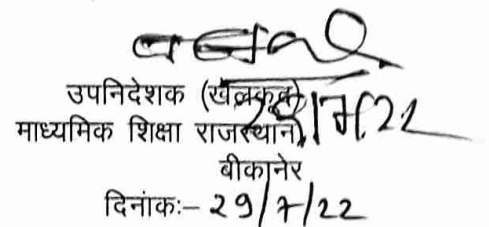 उपनिदेशक (खेलकूद)
माध्यमिक शिक्षा राजस्थान,
बीकानेर
दिनांकः– 29/7/22